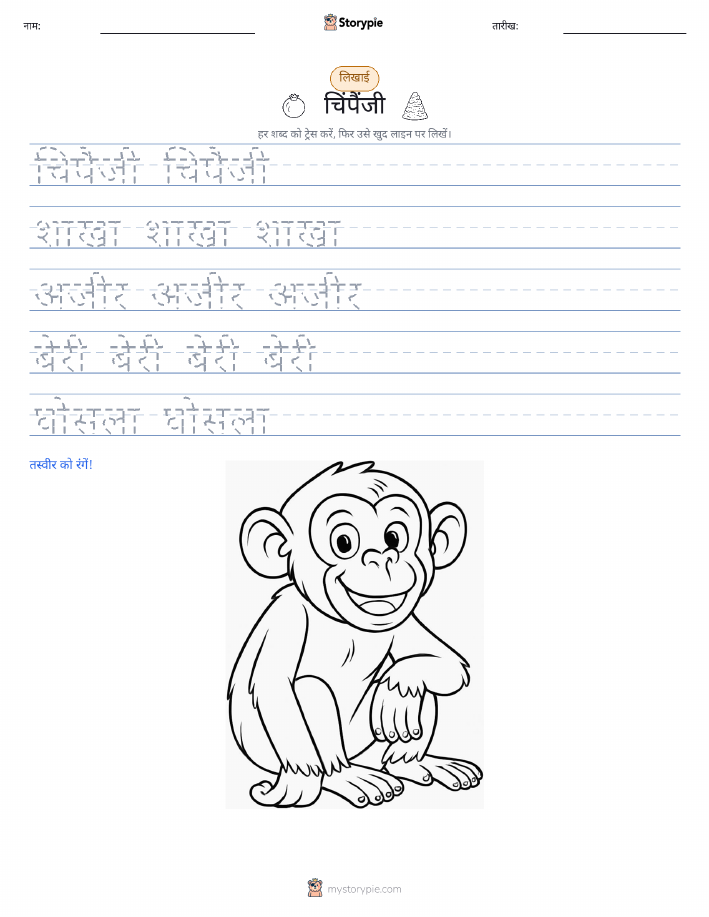 नाम:
Storypie
तारीख:
लिखाई
चिंपैंजी
हर शब्द को ट्रेस करें, फिर उसे खुद लाइन पर लिखें।
चिपैजी चिपैजी
शाखा शाखा शाखा
अजीर अजीर अजीर
बेरी बेरी बेरी बेरी
घोसला घोसला
तस्वीर को रंगें!
mystorypie.com